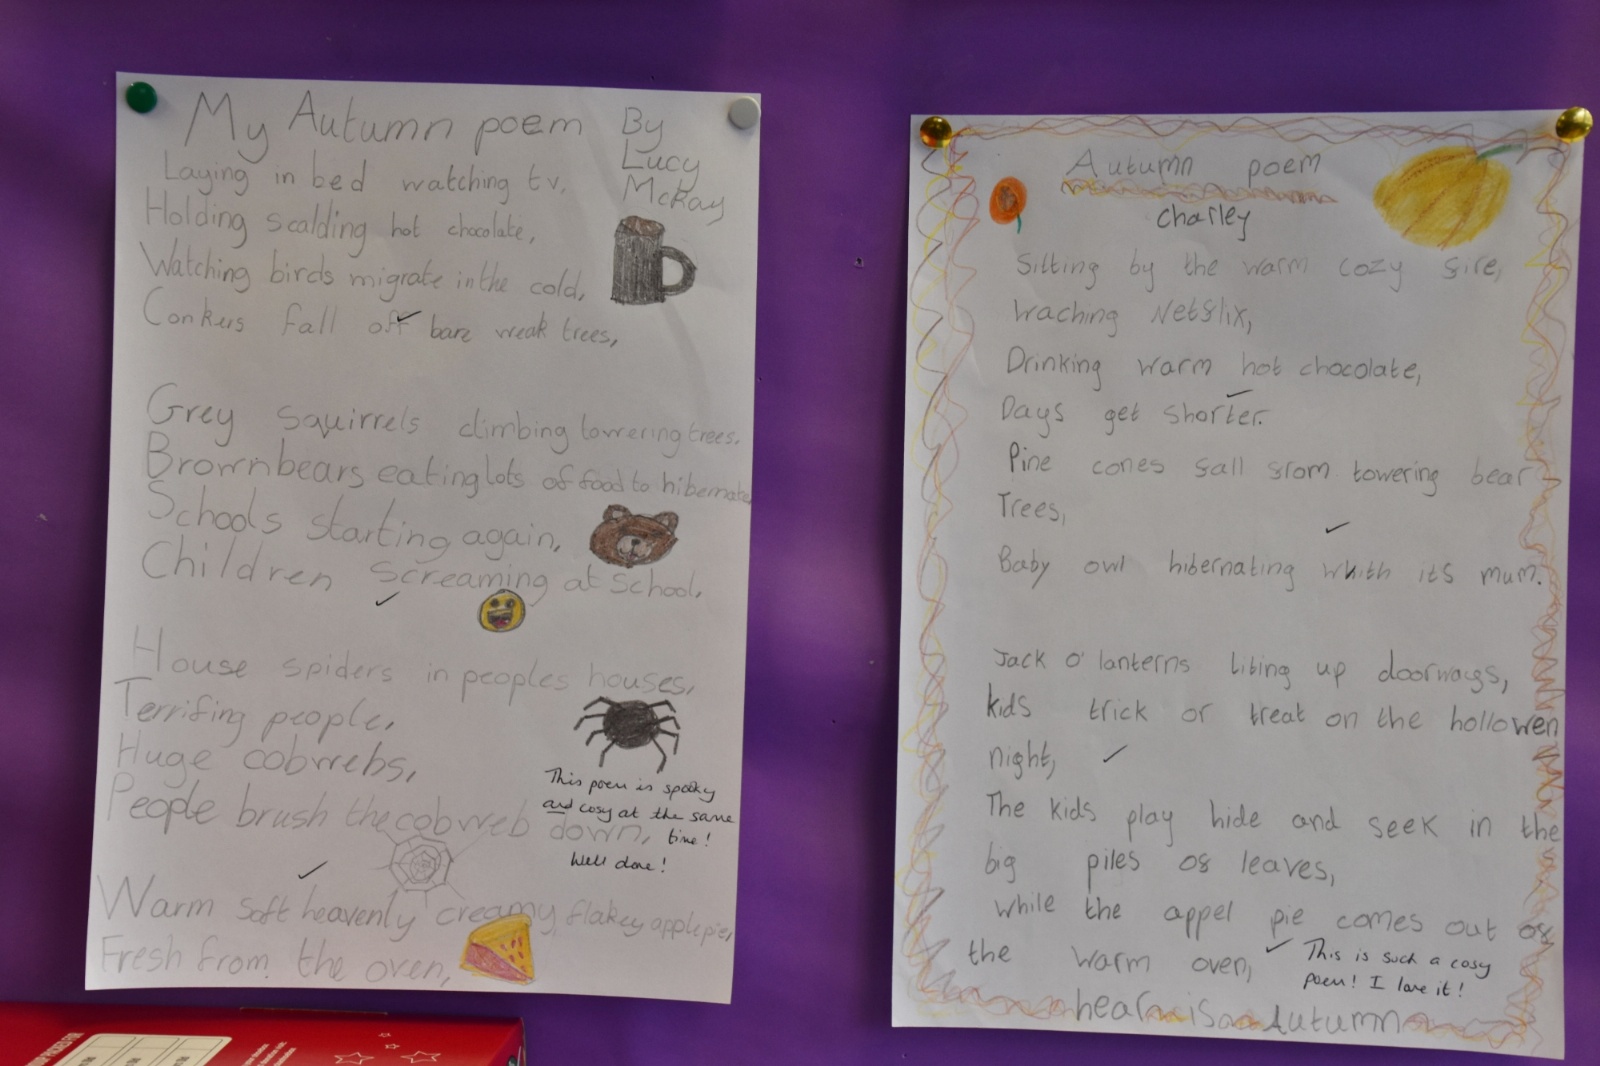 My Autumn poem By
Lucy
McRay
Laying in bed watching tv,
Holding scalding hot chocolate,
Watching birds migrate in the cold,
Conkers fall off bare weak trees,
Grey squirrels climbing towering trees.
Brown bears eating lots of food to hibernate,
Schools starting again,
Children screaming at school,
House spiders in peoples houses,
Terrifing people,
Huge cobwebs,
People brush the cobweb down,
This poem is spooky
and cosy at the same
time!
Well done!
Warm soft heavenly creamy flakey apple pie,
Fresh from the oven,
Autumn poem
Charley
Sitting by the warm cozy fire,
Waching Netflix,
Drinking warm hot chocolate,
Days get shorter.
Pine cones fall from towering bear
Trees,
Baby owl hibernating whith its mum.
Jack o' lanterns liting up doorways,
kids trick or treat on the hollowen
night,
The kids play hide and seek in the
big piles of leaves,
while the appel pie comes out of
the warm oven,
This is such a cosy
poem! I love it!
hear is Autumn